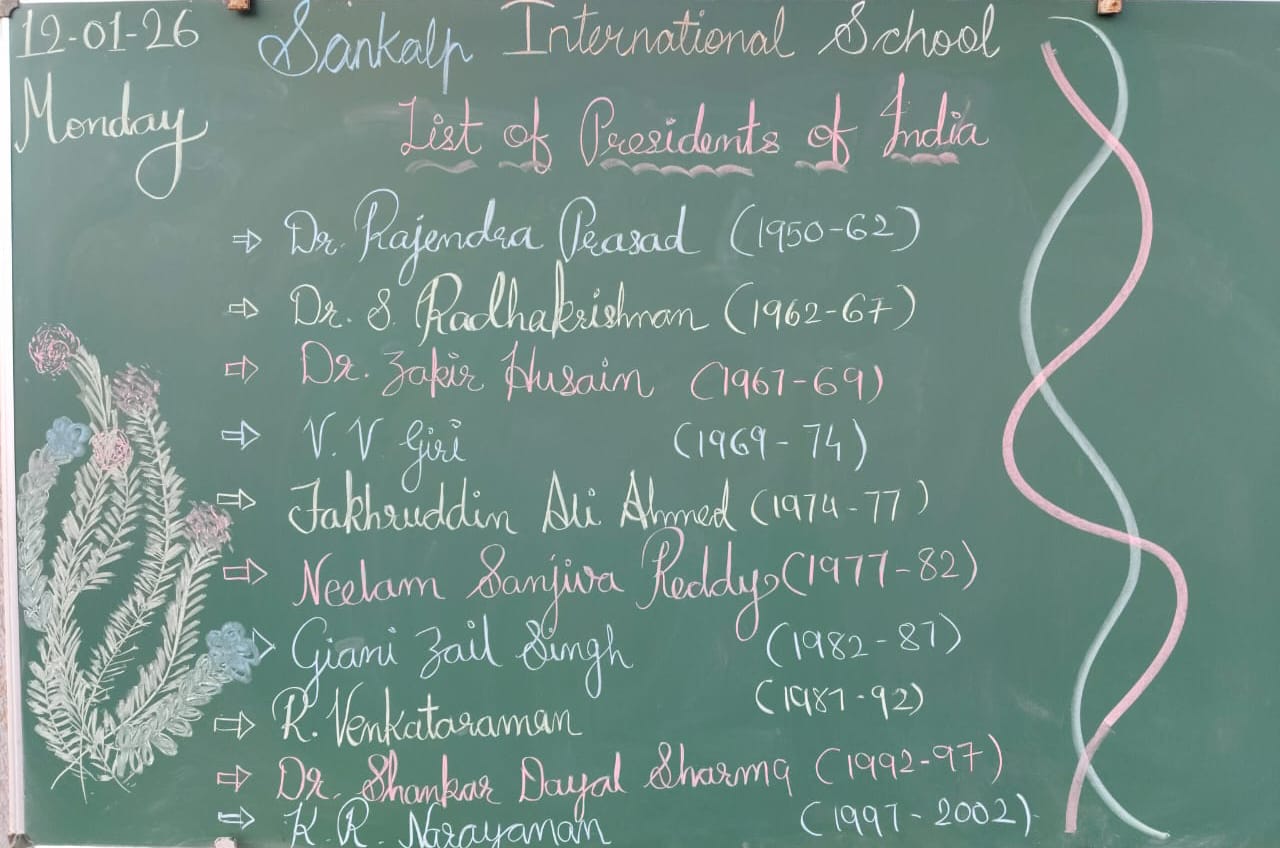 12-01-26
Monday
Sankalp International School
List of Presidents of India
⇨ Dr. Rajendra Prasad (1950-62)
⇨ Dr. S. Radhakrishnan (1962-67)
⇨ Dr. Zakir Husain (1967-69)
⇨ V. V Giri (1969-74)
⇨ Fakhruddin Ali Ahmed (1974-77)
⇨ Neelam Sanjiva Reddy (1977-82)
⇨ Giani Zail Singh (1982-87)
⇨ R. Venkataraman (1987-92)
⇨ Dr. Shankar Dayal Sharma (1992-97)
⇨ K. R. Narayanan (1997-2002)